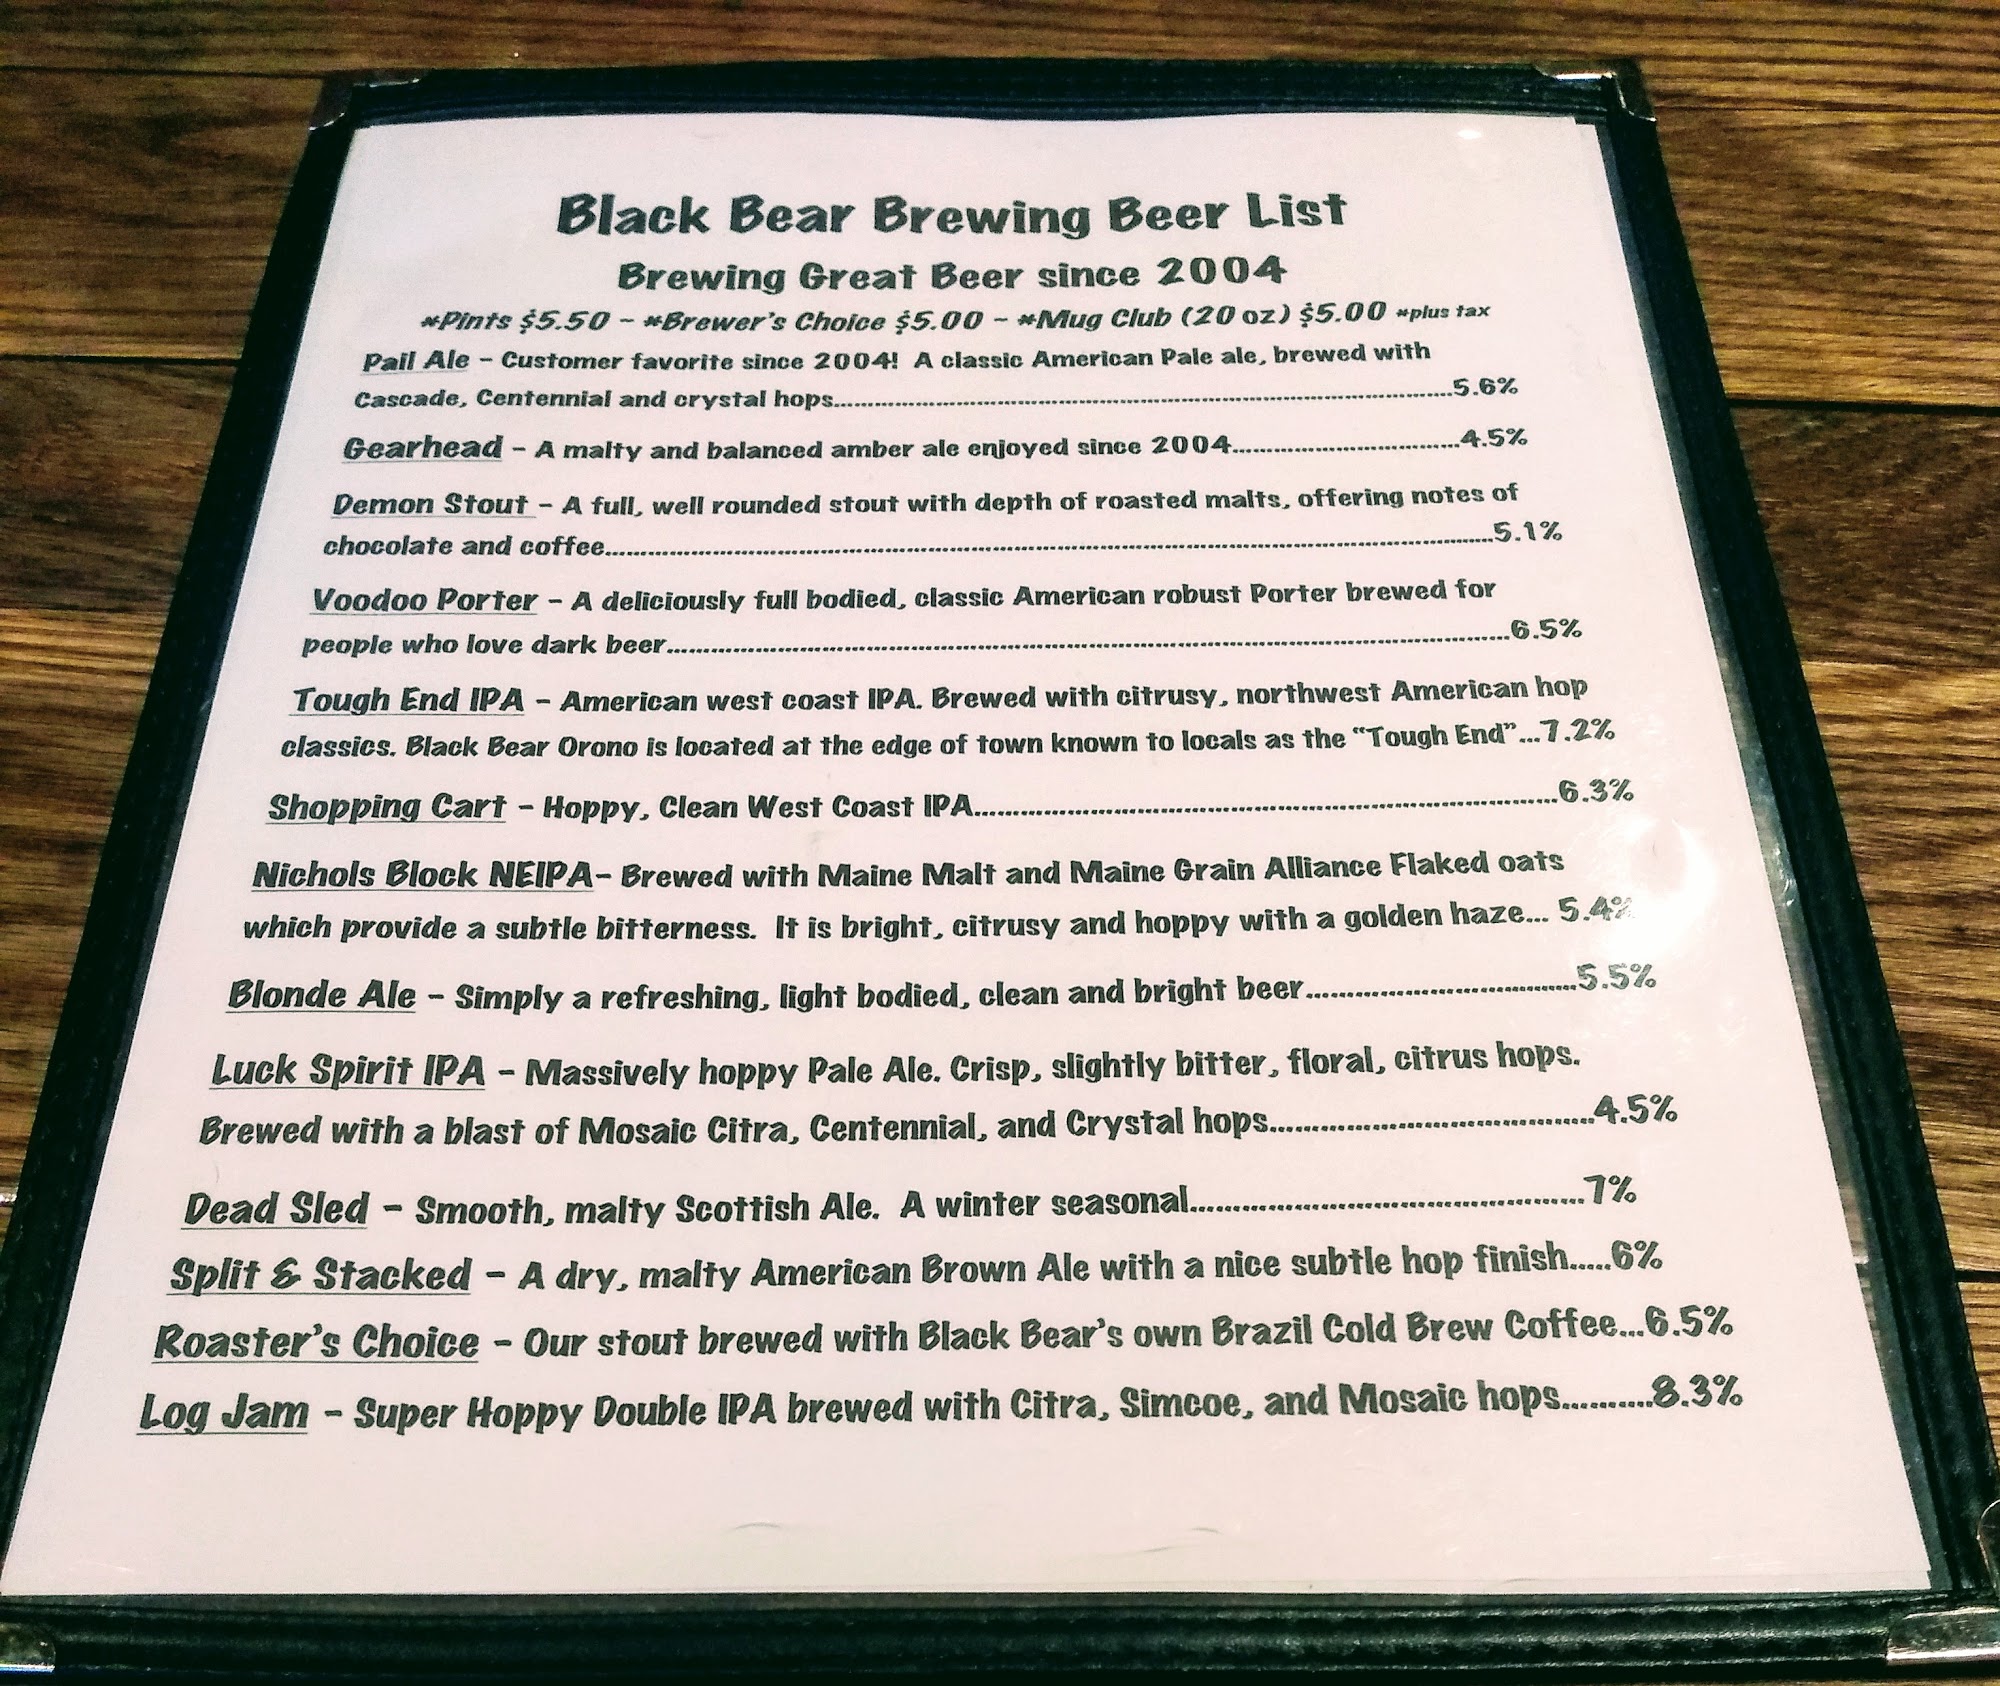 Black Bear Brewing Beer List
Brewing Great Beer since 2004
*Pints $5.50 ~ *Brewer's Choice $5.00 ~ *Mug Club (20 oz) $5.00 *plus tax
Pail Ale – Customer favorite since 2004! A classic American Pale ale, brewed with
Cascade, Centennial and crystal hops..........5.6%
Gearhead – A malty and balanced amber ale enjoyed since 2004..........4.5%
Demon Stout – A full, well rounded stout with depth of roasted malts, offering notes of
chocolate and coffee..........5.1%
Voodoo Porter – A deliciously full bodied, classic American robust Porter brewed for
people who love dark beer..........6.5%
Tough End IPA – American west coast IPA. Brewed with citrusy, northwest American hop
classics. Black Bear Orono is located at the edge of town known to locals as the "Tough End"...7.2%
Shopping Cart – Hoppy, Clean West Coast IPA..........6.3%
Nichols Block NEIPA– Brewed with Maine Malt and Maine Grain Alliance Flaked oats
which provide a subtle bitterness. It is bright, citrusy and hoppy with a golden haze... 5.4%
Blonde Ale – Simply a refreshing, light bodied, clean and bright beer..........5.5%
Luck Spirit IPA – Massively hoppy Pale Ale. Crisp, slightly bitter, floral, citrus hops.
Brewed with a blast of Mosaic Citra, Centennial, and Crystal hops..........4.5%
Dead Sled – Smooth, malty Scottish Ale. A winter seasonal..........7%
Split & Stacked – A dry, malty American Brown Ale with a nice subtle hop finish.....6%
Roaster's Choice – Our stout brewed with Black Bear's own Brazil Cold Brew Coffee...6.5%
Log Jam – Super Hoppy Double IPA brewed with Citra, Simcoe, and Mosaic hops..........8.3%